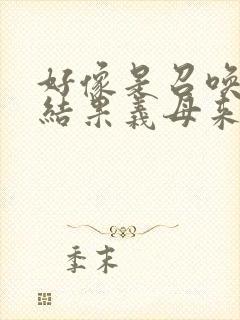 好像是召唤
結果義母来
季末